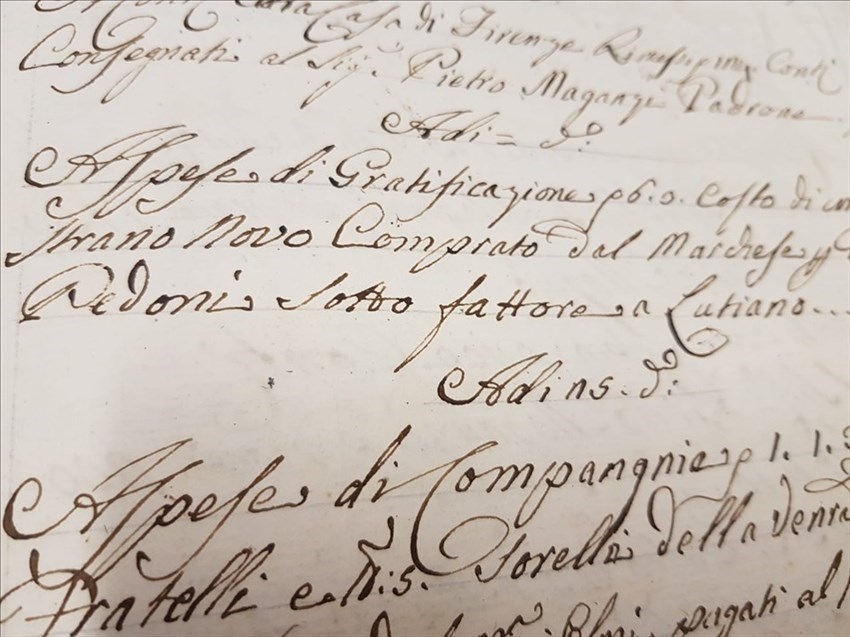 Casa di Firenze Conti
Consegnati al Sig.r Pietro Maganzi Padrone
Adi = d.o
A Spese di Gratificazione p 6. 0. Costo di un
Strano Novo Comprato dal Marchese
Pedoni Sotto fattore a Lutiano...
Adi 15. d.o
A Spese di Compangnie p 1. 1.
Fratelli e Sorelle della Vener
pagati al